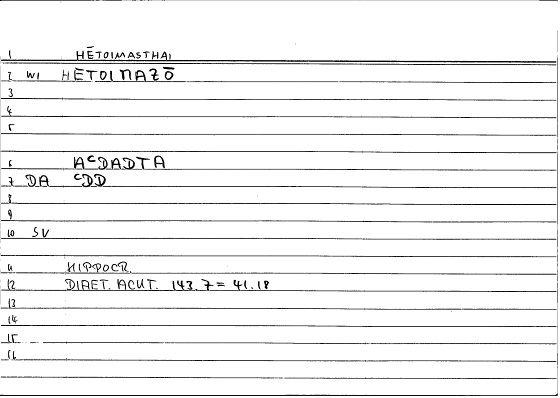 1 HĒTOIMASTHAI
2 WI HETOIMAZŌ
3
4
5
6 AᶜDADTA
7 DA ᶜDD
8
9
10 SV
11 HIPPOCR.
12 DIAET. ACUT. 143.7 = 41.18
13
14
15
16